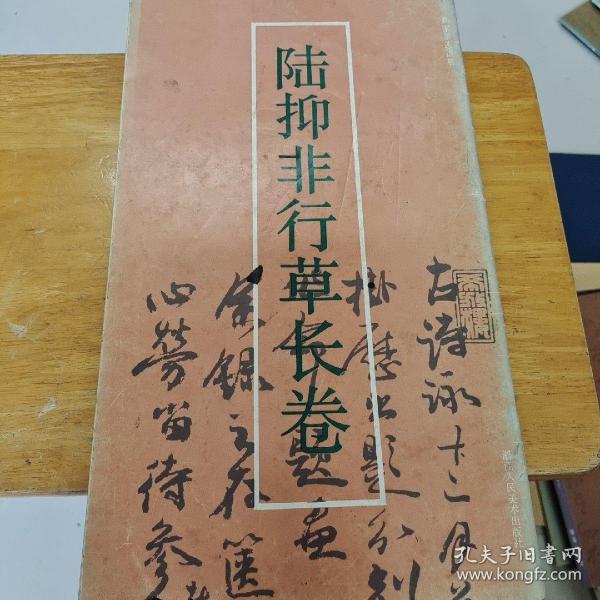 陆抑非行草长卷
古诗咏十二月
掛历出题分别
题画
余录之存箧
心劳当待参
浙江人民美术出版社
孔夫子旧书网
www.kongfz.com